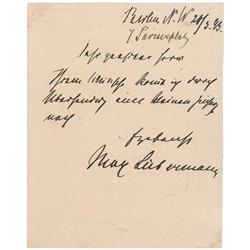 Berlin N.W. 28/3. 95.
7 Pariserplatz
Sehr geehrter Herr
Ihrem Wunsche komme ich durch
Übersendung einer kleinen
nach.
Ergebenst
Max Liebermann